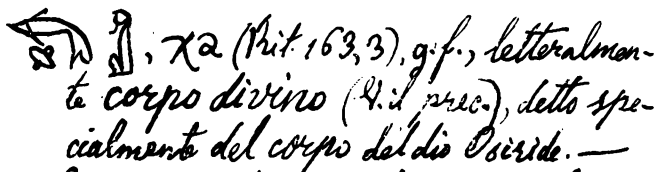 , χa (Rit. 163,3), g. f., letteralmen-
te corpo divino (V. il prec.), detto spe-
cialmente del corpo del dio Osiride. —